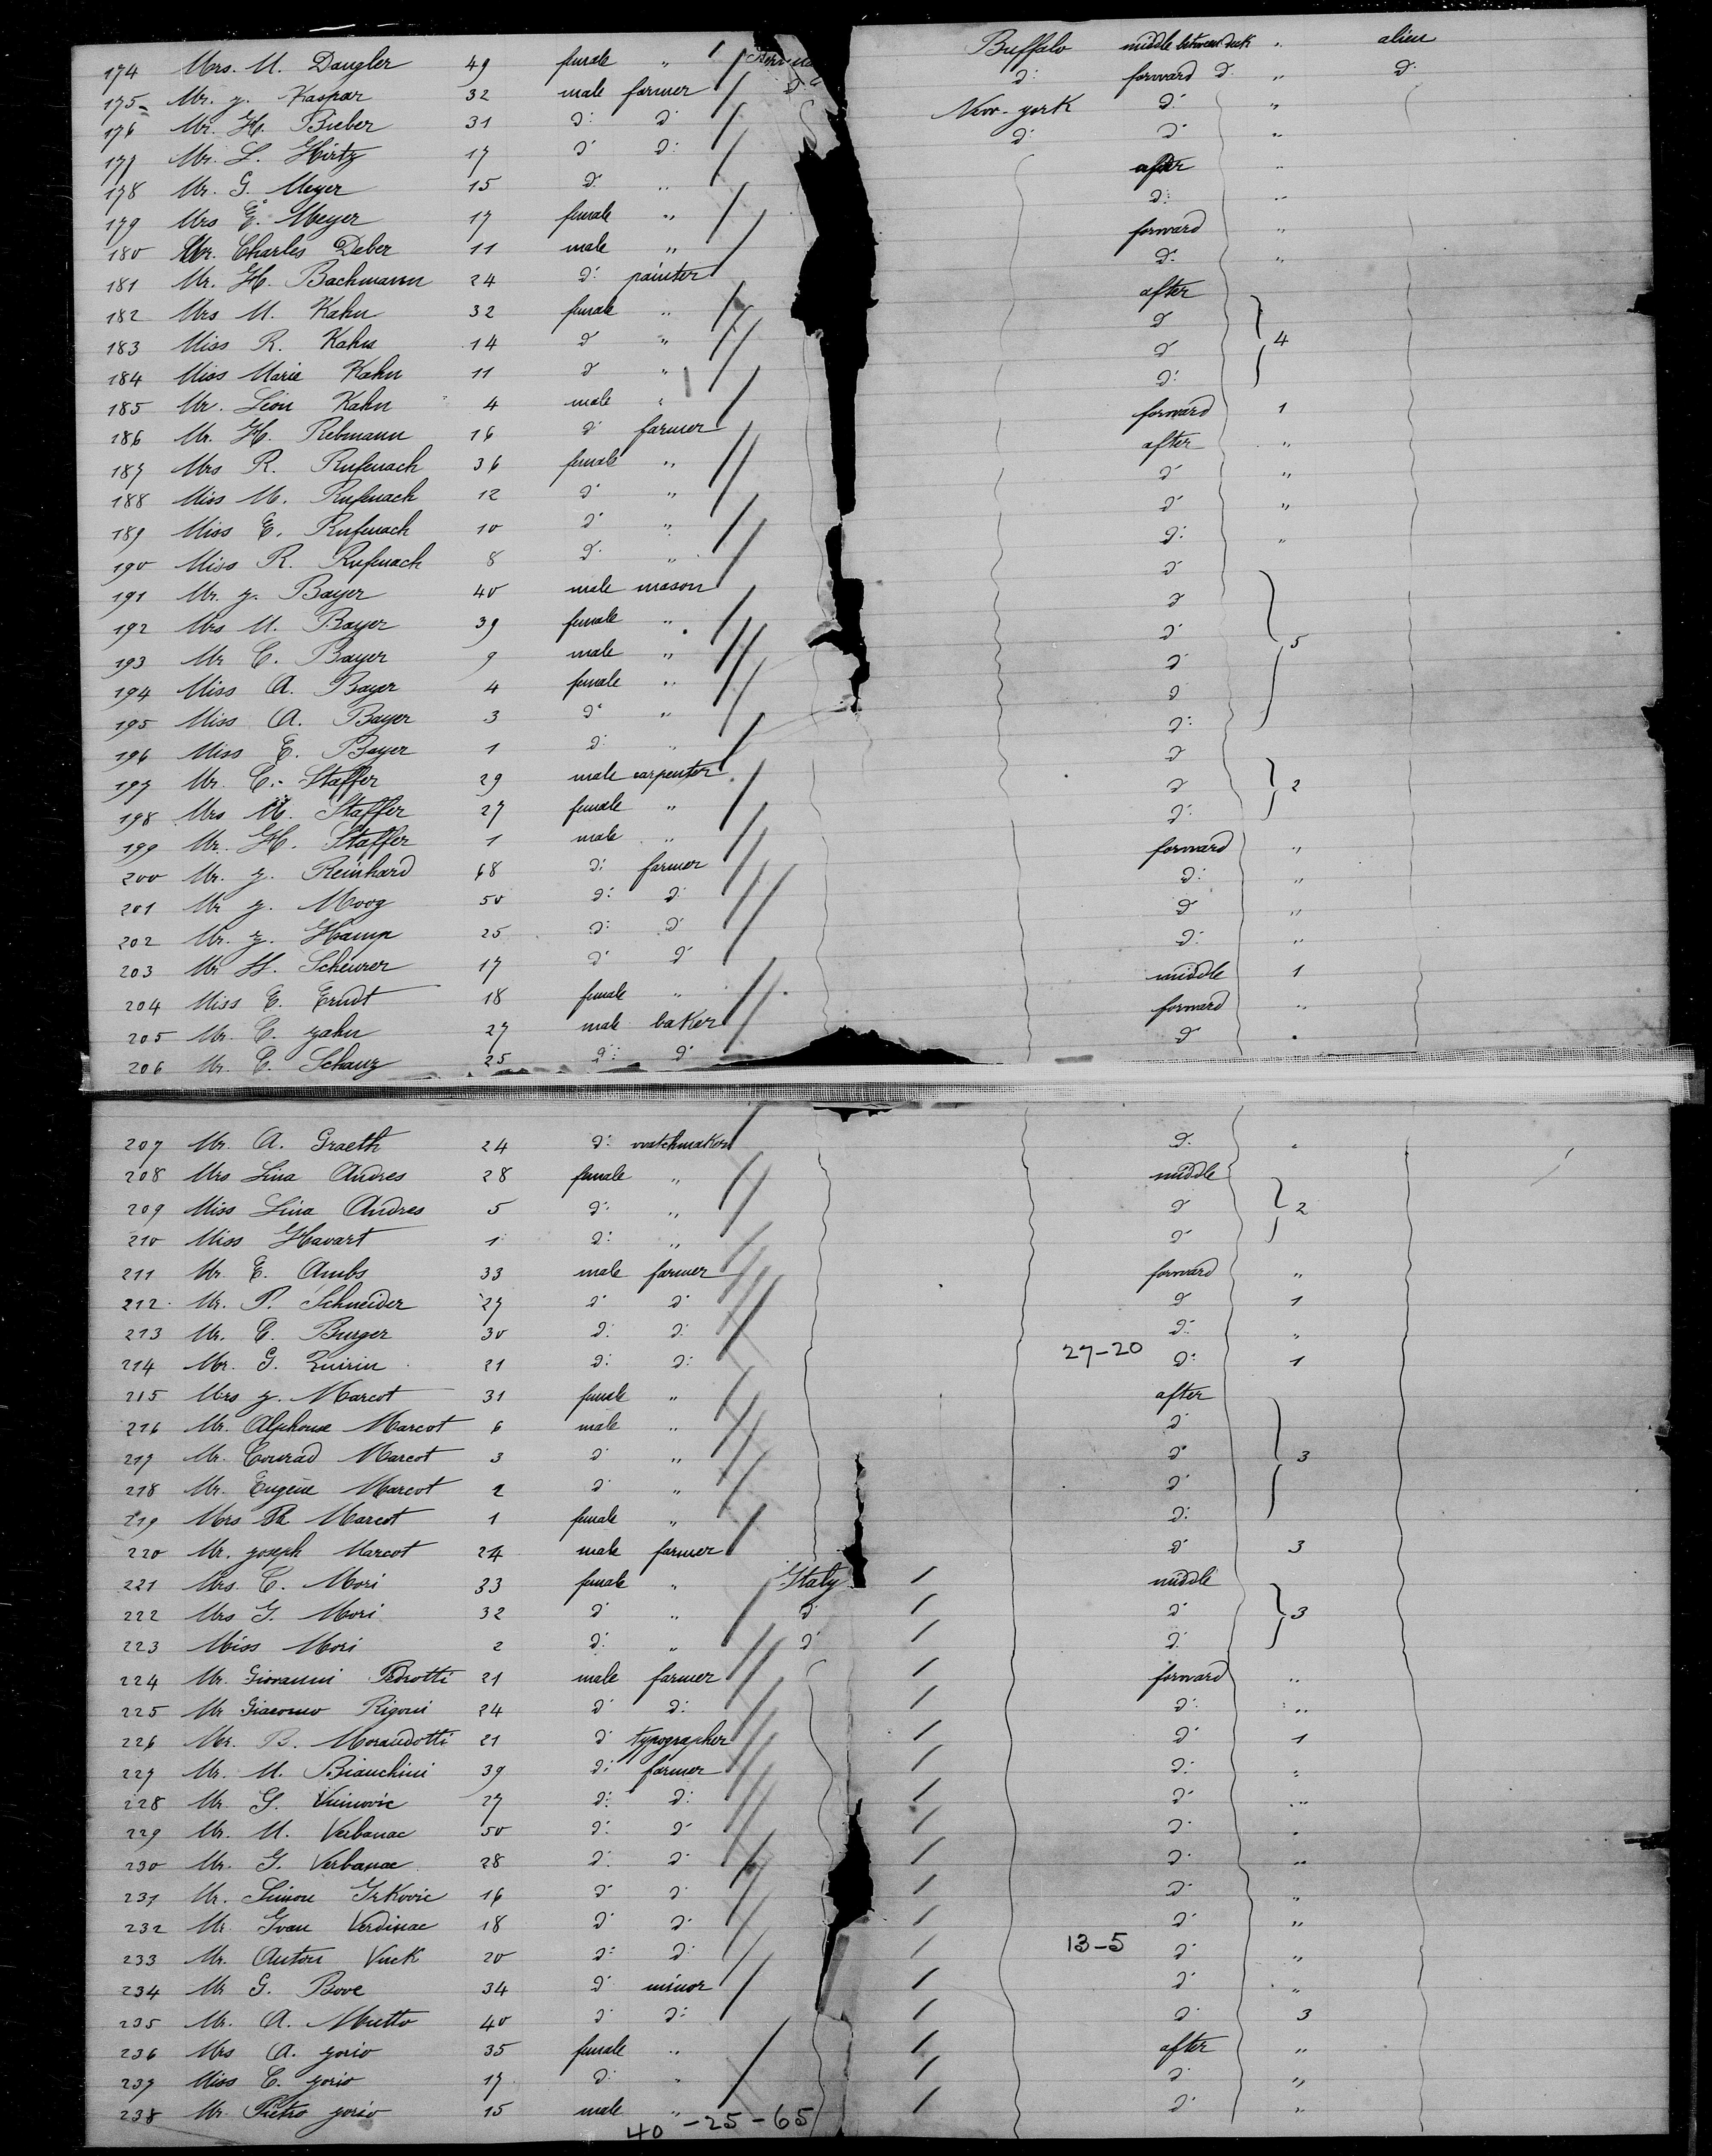 174 Mrs. M. Dangler 49 female " Buffalo middle between deck " alien
175 Mr. y. Kaspar 32 male farmer d: d: forward d: " d:
176 Mr. H. Bieber 31 d: d: New-york d: "
177 Mr. L. Hirtz 17 d: d: d: d: "
178 Mr. G. Meyer 15 d: " after "
179 Mrs E. Meyer 17 female " d: "
180 Mr. Charles Deber 11 male " forward "
181 Mr. H. Bachmann 24 d: painter d: "
182 Mrs M. Kahn 32 female " after
183 Miss R. Kahn 14 d " d 4
184 Miss Marie Kahn 11 d " d
185 Mr. Léon Kahn 4 male " d:
186 Mr. H. Rebmann 16 d: farmer forward 1
187 Mrs R. Rufenach 36 female " after "
188 Miss M. Rufenach 12 d: " d: "
189 Miss E. Rufenach 10 d: " d: "
190 Miss R. Rufenach 8 d: " d: "
191 Mr. y. Bayer 40 male mason d
192 Mrs M. Bayer 39 female " d
193 Mr C. Bayer 9 male " d: 5
194 Miss A. Bayer 4 female " d
195 Miss A. Bayer 3 d: " d
196 Miss E. Bayer 1 d: " d:
197 Mr. C. Staffer 29 male carpenter d
198 Mrs M. Staffer 27 female " d 2
199 Mr. H. Staffer 1 male " d:
200 Mr. y. Reinhard 68 d: farmer forward "
201 Mr y. Moog 50 d: d: d: "
202 Mr. y. Hamp 25 d: d: d: "
203 Mr H. Scheurer 17 d: d: d: "
204 Miss E. Erndt 18 female " middle 1
205 Mr. C. yahn 27 male baker forward "
206 Mr. E. Schanz 25 d: d: d "
207 Mr. A. Graeth 24 d: watchmaker d: "
208 Mrs Lina Andres 28 female " middle
209 Miss Lina Andres 5 d: " d 2
210 Miss Havart 1 d: " d:
211 Mr. E. Ambs 33 male farmer forward "
212 Mr. P. Schneider 27 d: d: d 1
213 Mr. E. Burger 30 d: d: d: "
214 Mr. G. Quirin 21 d: d: 27-20 d: 1
215 Mrs y. Marcot 31 female " after
216 Mr. Alphonse Marcot 6 male " d:
217 Mr. Conrad Marcot 3 d " d: 3
218 Mr. Eugène Marcot 2 d " d:
219 Mrs R. Marcot 1 female " d:
220 Mr. yoseph Marcot 24 male farmer d: 3
221 Mrs. C. Mori 33 female " Italy middle
222 Mrs G. Mori 32 d: " d: d: 3
223 Miss Mori 2 d: " d: d:
224 Mr. Giovanni Pedrotti 21 male farmer forward "
225 Mr Giacomo Rigoni 24 d: d: d: "
226 Mr. B. Morandotti 21 d: typographer d: 1
227 Mr. M. Bianchini 39 d: farmer d: "
228 Mr. G. 27 d: d: d: "
229 Mr. M. Verbanac 50 d: d: d: "
230 Mr. G. Verbanac 28 d: d: d: "
231 Mr. Simon Grkovic 16 d: d: d: "
232 Mr Ivan Verdinac 18 d: d: d: "
233 Mr. Anton Vuck 20 d: d: 13-5 d: "
234 Mr G. Bove 34 d: minor d: "
235 Mr. A. Mutto 40 d: d: d: 3
236 Mrs A. yorio 35 female " after "
237 Miss C. yorio 17 d: " d: "
238 Mr. Pietro yorio 15 male " d: "
40 -25-65